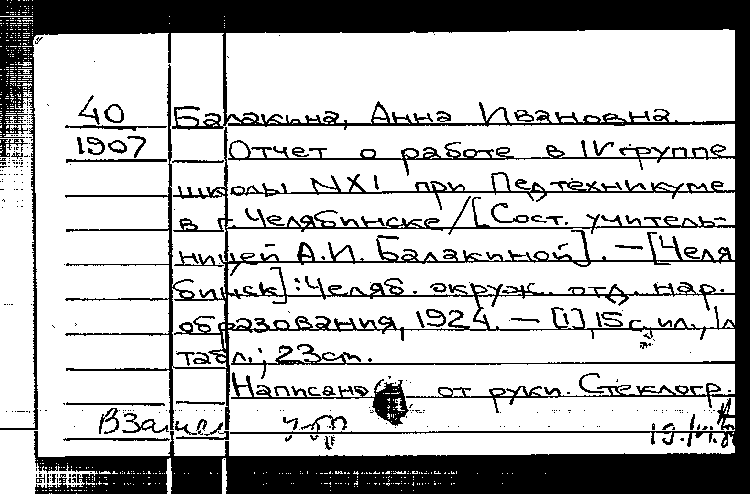 40 Балакина, Анна Ивановна.
1907 Отчет о работе в IV группе
школы NXI при Педтехникуме
в г. Челябинске/[Сост. учитель-
ницей А.И. Балакиной]. — [Челя
бинск]: Челяб. окруж. отд. нар.
образования, 1924. — [1], 15 с. ил., 1л
табл.; 23 cm.
Написано от руки. Стеклогр.